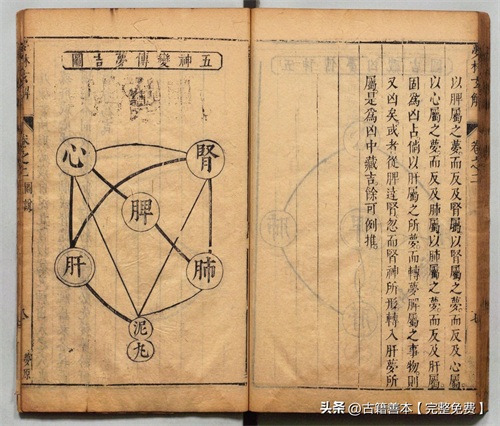 夢林玄解
卷之二
以脾屬之夢而反及腎屬以腎屬之夢而反及心屬
以心屬之夢而反及肺屬以肺屬之夢而反及肝屬
固為凶占倘以肝屬之所夢而轉夢解屬之事物則
又凶矣或者從脾達腎忽而腎神所形轉入肝夢所
屬是為凶中藏吉餘可倒推
五神變傳夢吉圖
腎
心
脾
肺
肝
泥
丸
卷之二 圖說
夢原
头条 @古籍善本【完整免费】